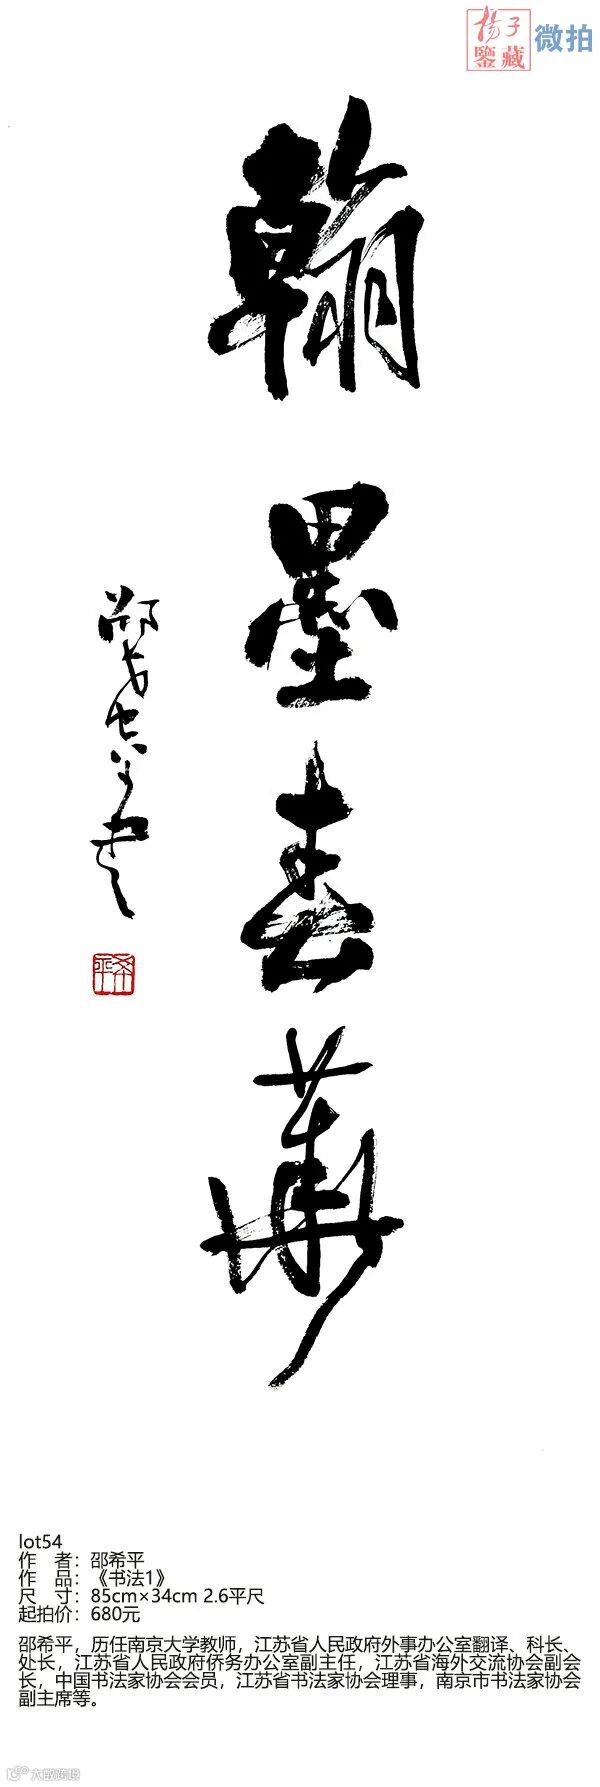 揚子
鑒藏
微拍
翰墨春華
邵希平書
希平
lot54
作　者：邵希平
作　品：《书法1》
尺　寸：85cm×34cm 2.6平尺
起拍价：680元
邵希平，历任南京大学教师，江苏省人民政府外事办公室翻译、科长、
处长，江苏省人民政府侨务办公室副主任，江苏省海外交流协会副会
长，中国书法家协会会员，江苏省书法家协会理事，南京市书法家协会
副主席等。
大数跨境